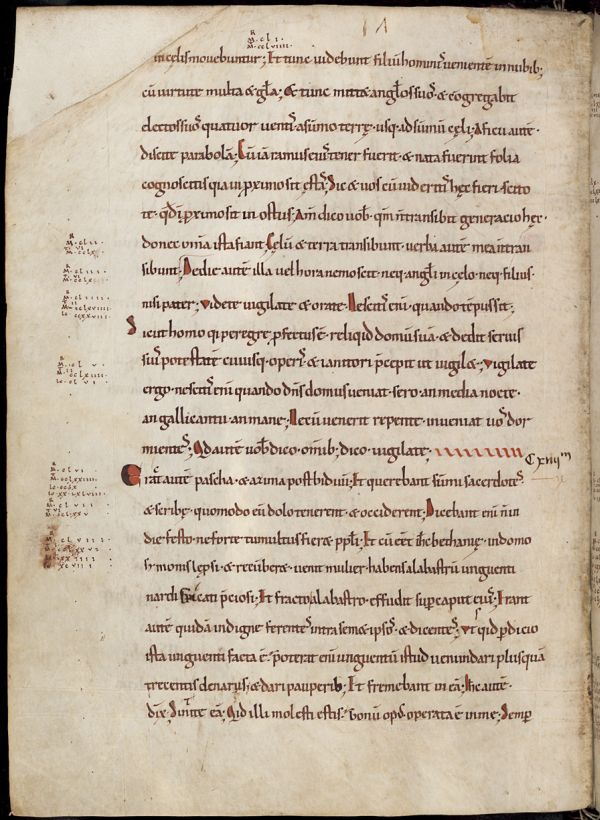 in celis mouebuntur; Et tunc uidebunt filiu hominis uenientē in nubib;
cū uirtute multa & gl̄a; & tunc mitt& angl̄os suos & c̄gregabit
electos suos quatuor uentis a sūmo terrę· usq; ad sūmū cęli; A ficu autē·
discite parabolā; Cū iā ramus eius tener fuerit & nata fuerint folia
cognoscitis quia in p̄ximo sit ęstas; Sic & uos cū uideritis hęc fieri· scito
te· qd̄ in p̄ximo sit in ostiis; Am̄ dico uob̄· qm̄ n̄ transibit generacio hęc·
donec omnia ista fiant; Cęlū & terra transibunt· uerba autē mea n̄ tran
sibunt; De die autē illa uel hora nemo scit· neq; angl̄i in celo· neq; filius·
nisi pater; Videte uigilate & orate· Nescitis enī· quando tēpus sit;
Sicut homo qi peregre p̄fectus ē· reliqid domū suā· & dedit seruis
suis potestatē cuiusq; operis· & ianitori p̄cepit ut uigil&; Vigilate
ergo· nescitis enī quando dn̄s domus ueniat· sero· an media nocte·
an gallicantu· an mane; Ne cū uenerit repente· inueniat uos dor
mientes; Qd autē uob̄ dico· omnib; dico· uigilate·
Cxiiii m
Erat̄ autē pascha· & azima post biduū; Et querebant sūmi sacerdotes
& scribę· quomodo eū dolo tenerent· & occiderent; Dicebant enī n̄ in
die festo· ne forte tumultus fier& pp̄li; Et cū eēt ih̄c bethanię· in domo
symonis lep̄si· & recūber&· uenit mulier· habens alabastrū unguenti
nardi spicati p̄ciosi; Et fracto alabastro· effudit sup̄ caput eius; Erant
autē quidā indigne ferentes intra semetipsos· & dicentes; Vt qid p̄dicio
ista unguenti facta ē· poterat enī unguentū istud uenundari plusquā
trecentis denariis· & dari pauperib; Et fremebant in eā; Ih̄c autē·
dix̄; Sinite eā; Qid illi molesti estis· bonū op̄ operata ē in me; Semp̄